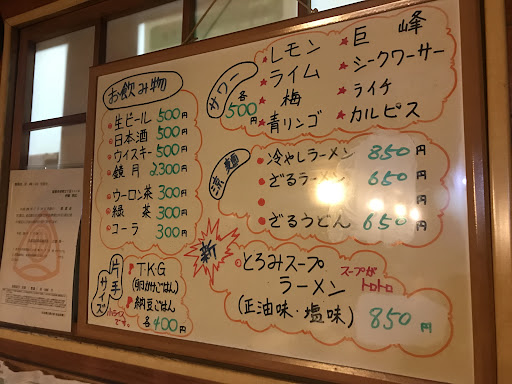 お飲み物
生ビール 500円
日本酒 500円
ウイスキー 500円
鏡月 2,300円
ウーロン茶 300円
緑茶 300円
コーラ 300円
サワー 各500円
レモン
ライム
梅
青リンゴ
巨峰
シークワーサー
ライチ
カルピス
涼麺
冷やしラーメン 850円
ざるラーメン 650円
ざるうどん 650円
片手サイズ
小ライスです。
T.K.G
(卵かけごはん)
納豆ごはん
各400円
新
とろみスープ
ラーメン
スープが
トロトロ
(正油味・塩味) 850円